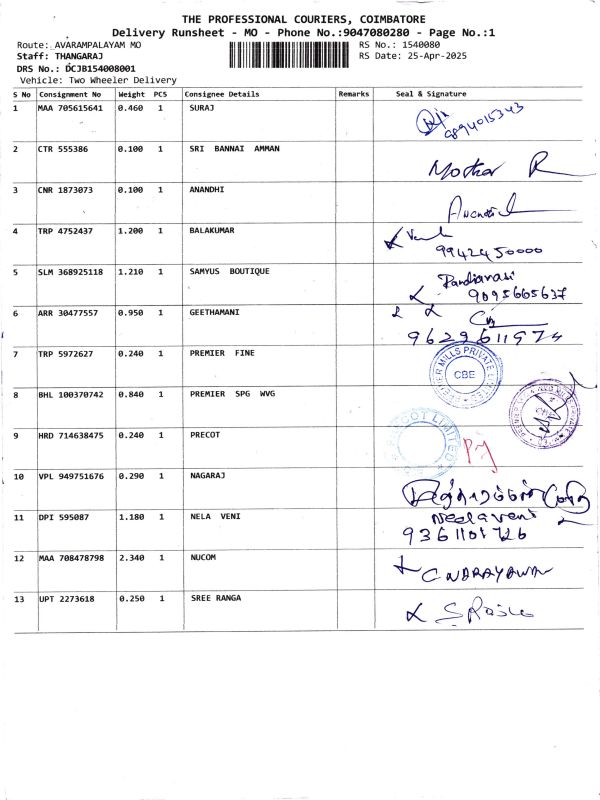 THE PROFESSIONAL COURIERS, COIMBATORE
Delivery Runsheet - MO - Phone No.:9047080280 - Page No.:1
Route: AVARAMPALAYAM MO RS No.: 1540080
Staff: THANGARAJ RS Date: 25-Apr-2025
DRS No.: DCJB154008001
Vehicle: Two Wheeler Delivery
S No Consignment No Weight PCS Consignee Details Remarks Seal & Signature
1 MAA 705615641 0.460 1 SURAJ 9894015343
2 CTR 555386 0.100 1 SRI BANNAI AMMAN
3 CNR 1873073 0.100 1 ANANDHI
4 TRP 4752437 1.200 1 BALAKUMAR
9942450000
5 SLM 368925118 1.210 1 SAMYUS BOUTIQUE
9095665637
6 ARR 30477557 0.950 1 GEETHAMANI
9629611974
7 TRP 5972627 0.240 1 PREMIER FINE
PREMIER MILLS PRIVATE LIMITED CBE
8 BHL 100370742 0.840 1 PREMIER SPG WVG
9 HRD 714638475 0.240 1 PRECOT PRECOT LIMITED
10 VPL 949751676 0.290 1 NAGARAJ
11 DPI 595087 1.180 1 NELA VENI Neelaveni
9361101726
12 MAA 708478798 2.340 1 NUCOM
13 UPT 2273618 0.250 1 SREE RANGA